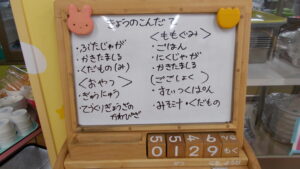 きょうのこんだて
・ぶたじゃが
・かきたまじる
・くだもの(み)
<おやつ>
・ぎゅうにゅう
・てづくりぎょうざの
かわぴざ
<ももぐみ>
・ごはん
・にくじゃが
・かきたまじる
(ごごしょく)
・すてぃっくぱん
・みそ汁・くだもの
0129
もく